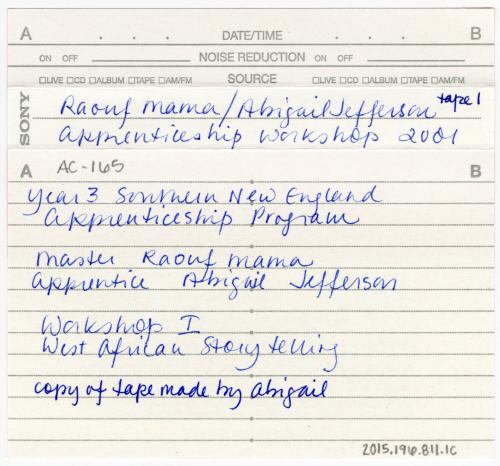 A . . . DATE/TIME . . . B
ON OFF NOISE REDUCTION ON OFF
□LIVE □CD □ALBUM □TAPE □AM/FM SOURCE □LIVE □CD □ALBUM □TAPE □AM/FM
SONY
Raouf Mama/Abigail Jefferson tape 1
Apprenticeship Workshop 2001
A AC-165 B
Year 3 Southern New England
Apprenticeship Program
Master Raouf Mama
Apprentice Abigail Jefferson
Workshop I
West African Storytelling
copy of tape made by Abigail
2015.196.811.1c